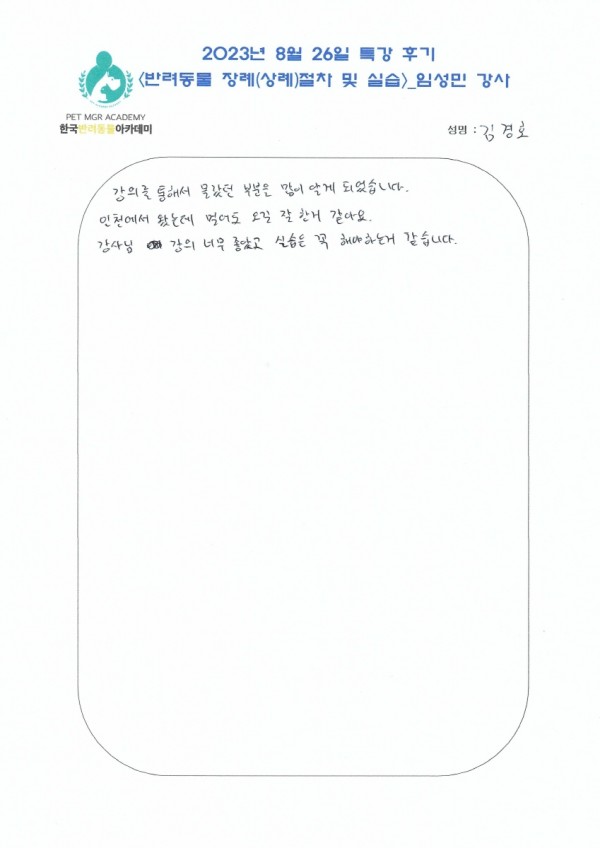 2023년 8월 26일 특강 후기
<반려동물 장례(상례)절차 및 실습>_임성민 강사
PET MGR ACADEMY
한국반려동물아카데미
성명 : 김경호
강의를 통해서 몰랐던 부분은 많이 알게 되었습니다.
인천에서 왔는데 멀어도 오길 잘 한거 같아요.
강사님 강의 너무 좋았고 실습은 꼭 해야하는거 같습니다.